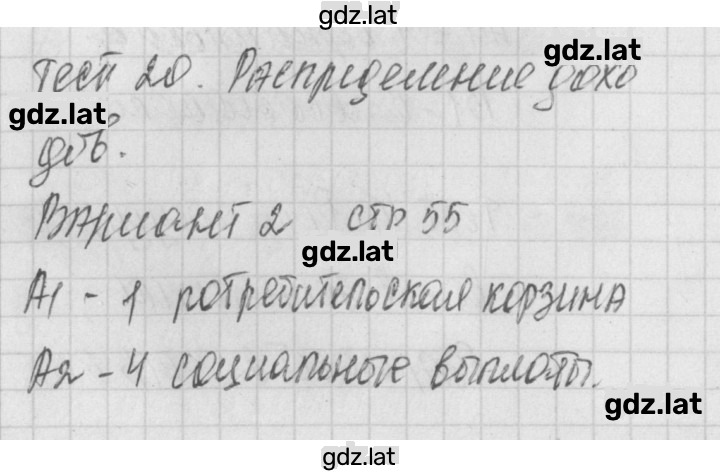 gdz.lat
gdz.lat
Тест 20. Распределение дохо
gdz.lat
дов.
Вариант 2 стр 55
gdz.lat
А1 - 1 потребительская корзина
А2 - 4 социальные выплаты.
gdz.lat
gdz.lat